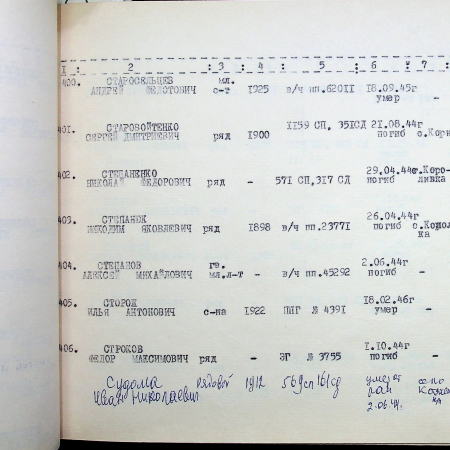 1 : 2 : 3 : 4 : 5 : 6 : 7 :
400. СТАРОСЕЛЬЦЕВ мл.
АНДРЕЙ ФЕДОТОВИЧ с-т 1925 в/ч пп.62011 18.09.45г
умер -
401. СТАРОВОЙТЕНКО 1159 СП, 351СД 21.08.44г
СЕРГЕЙ ДМИТРИЕВИЧ ряд 1900 погиб с.Корн
402. СТЕПАНЕНКО 29.04.44г с.Коро-
НИКОЛАЙ ФЕДОРОВИЧ ряд - 571 СП,317 СД погиб ливка
403. СТЕПАНЮК 26.04.44г
НИКОДИМ ЯКОВЛЕВИЧ ряд 1898 в/ч пп.23771 погиб
ка
404. СТЕПАНОВ гв. 2.06.44г
АЛЕКСЕЙ МИХАЙЛОВИЧ мл.л-т - в/ч пп.45292 погиб -
405. СТОРОЖ 18.02.46г
ИЛЬЯ АНТОНОВИЧ с-на 1922 ППГ № 4391 умер -
406. СТРОКОВ 1.10.44г
ФЕДОР МАКСИМОВИЧ ряд - ЭГ № 3755 погиб -
Судома рядовой 1912 569сп 161сд умер от село
Иван Николаевич ран
2.06.44.